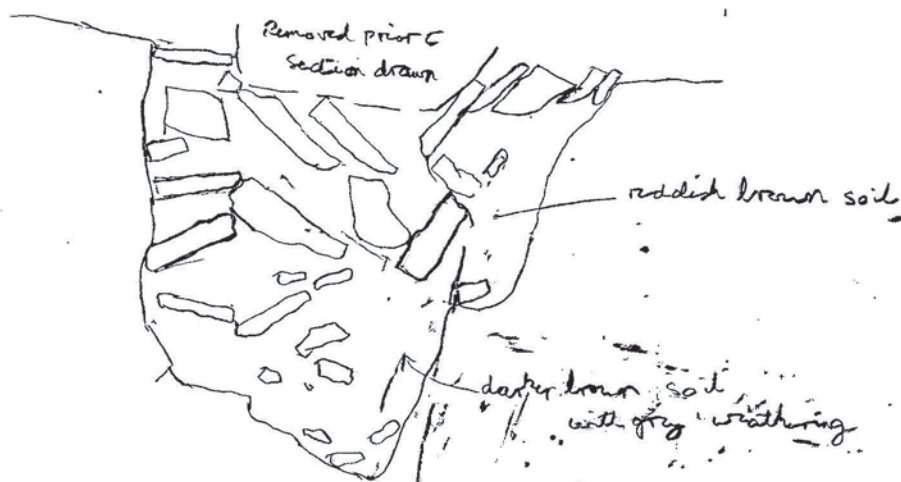 Removed prior to
Section drawn
reddish brown soil
darker brown soil
with grey weathering